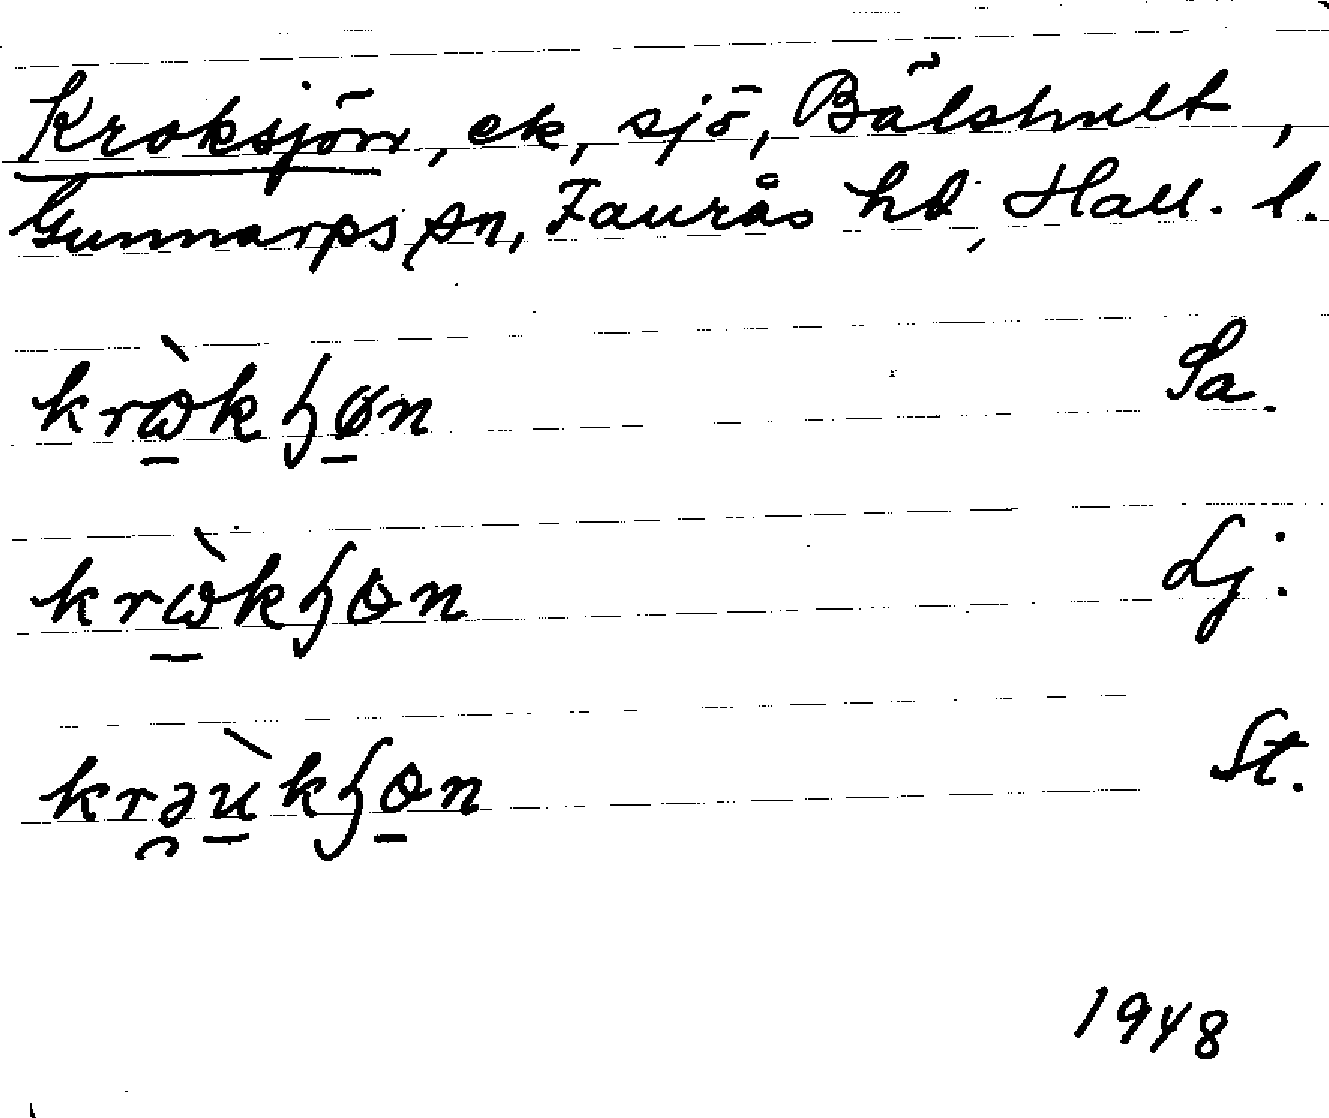 Kroksjön, ek, sjö, Bälshult,
Gunnarps sn, Faurås hd, Hall. l.
krɷ̀kɧøn Sa.
krɷ̀kɧɵn Lj.
krəùkɧɵn St.
1948